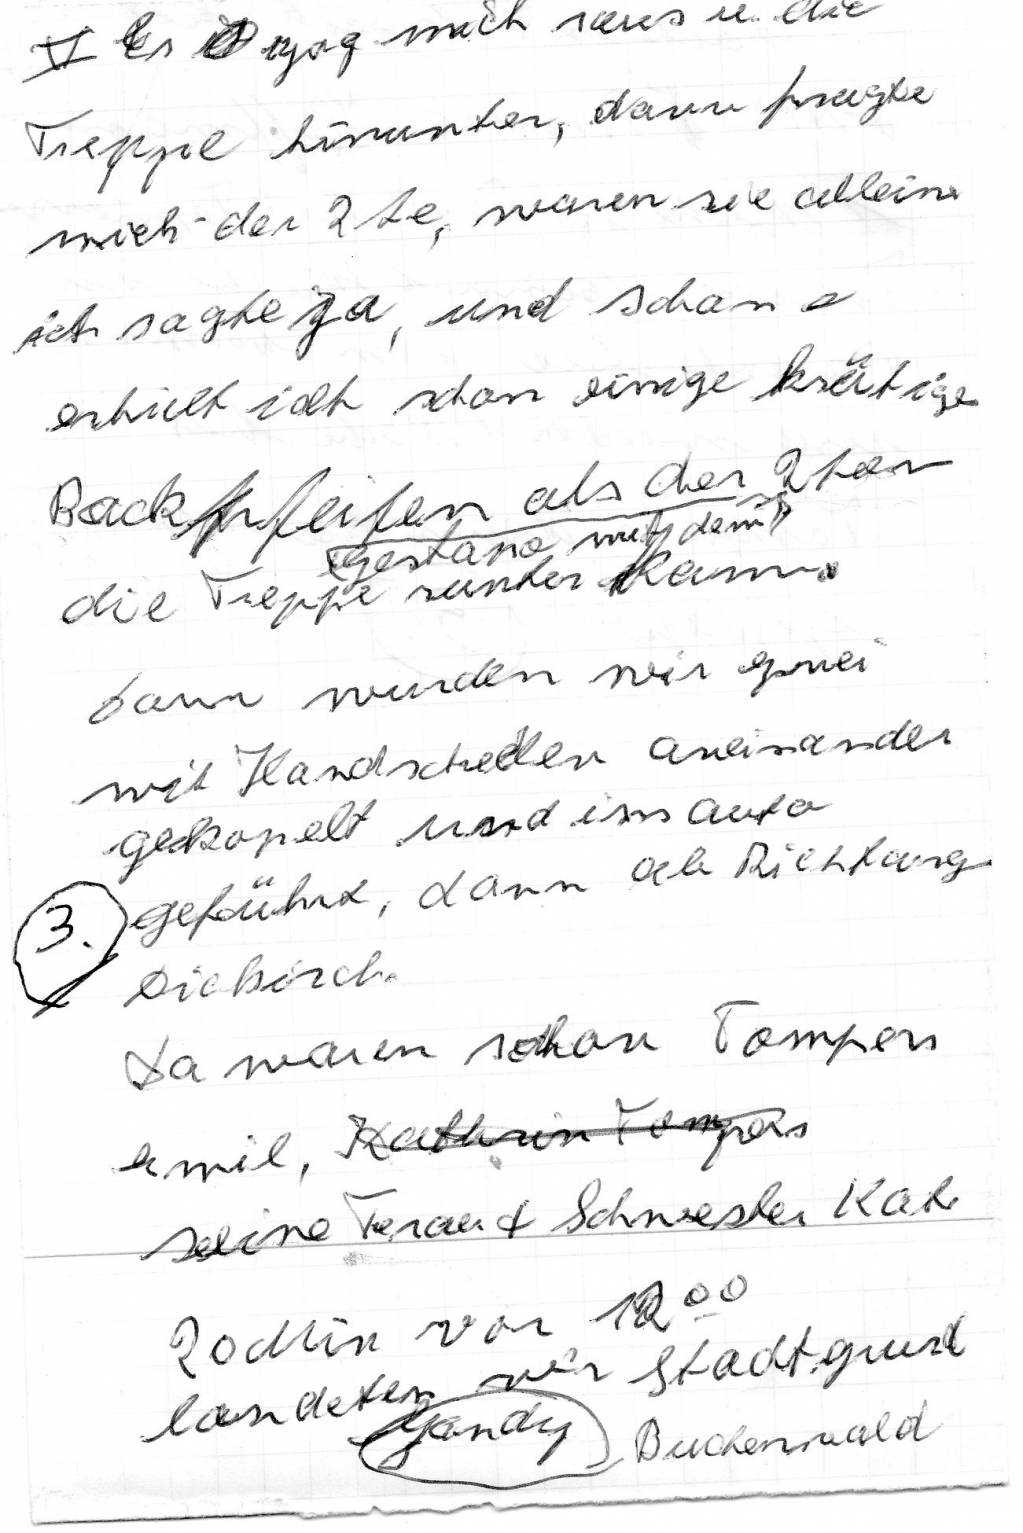 V Er zog mich raus u. die
Treppe hinunter, dann fragte
mich der 2te, waren sie allein
ich sagte ja, und schon
erhielt ich schon einige kräftige
Backpfeifen als der 2ter
gestapo mit dem
die Treppe runter kam.
dann wurden wir zwei
mit Handschellen aneinander
gekopelt und ins auto
3. geführt, dann ab Richtung
Diekirch.
Da waren schon Tompers
emil, Kathrin Tompers
seine Frau + Schwester Kat
20 Min vor 12 00
landeten wir Stadtgrund
Gandy Buchenwald